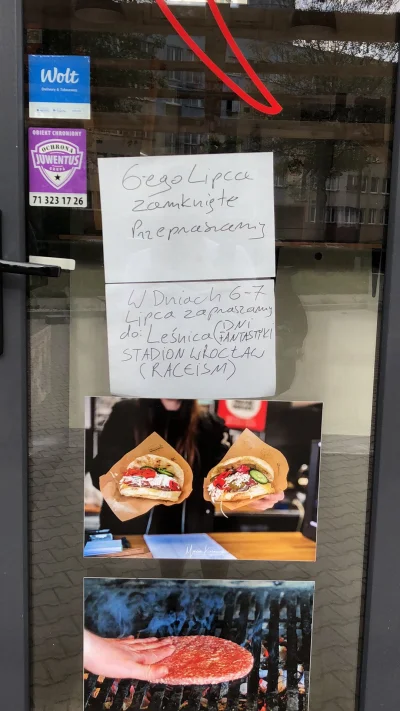 Wolt
OBIEKT CHRONIONY
OCHRONA
JUWENTUS
71 323 17 26
6-ego Lipca
zamknięte
Przepraszamy
W Dniach 6-7
Lipca zapraszamy
do: Leśnica (DNI
FANTASTYKI
STADION WROCŁAW
(RACEISM)